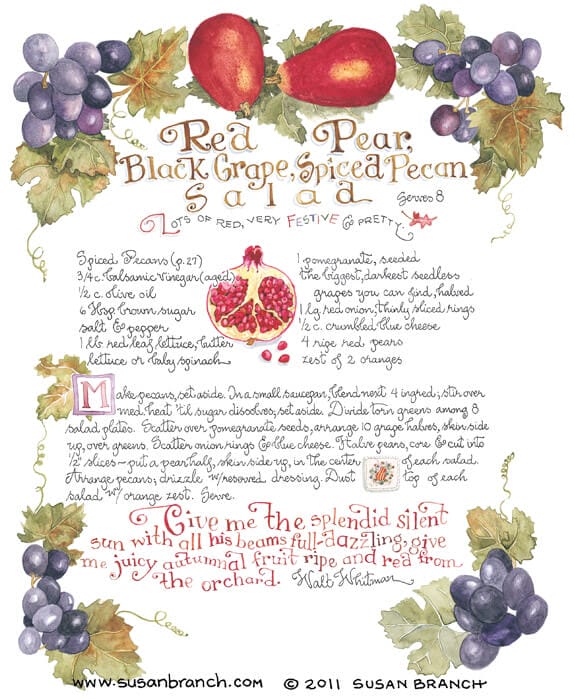 Red Pear,
Black Grape, Spiced Pecan
Salad
Serves 8
Lots of red, very festive & pretty.
Spiced Pecans (p. 27)
3/4 c. balsamic vinegar (aged)
1/2 c. olive oil
6 tbsp. brown sugar
salt & pepper
1 lb. red leaf lettuce, butter
lettuce or baby spinach
1 pomegranate, seeded
the biggest, darkest seedless
grapes you can find, halved
1 lg. red onion, thinly sliced rings
1/2 c. crumbled blue cheese
4 ripe red pears
zest of 2 oranges
Make pecans, set aside. In a small saucepan, blend next 4 ingred.; stir over
med. heat 'til sugar dissolves; set aside. Divide torn greens among 8
salad plates. Scatter over pomegranate seeds, arrange 10 grape halves, skin side
up, over greens. Scatter onion rings & blue cheese. Halve pears, core & cut into
1/2" slices ~ put a pear half, skin side up, in the center of each salad.
Arrange pecans; drizzle w/ reserved dressing. Dust top of each
salad w/ orange zest. Serve.
Give me the splendid silent
sun with all his beams full-dazzling, give
me juicy autumnal fruit ripe and red from
the orchard. Walt Whitman
www.susanbranch.com © 2011 SUSAN BRANCH